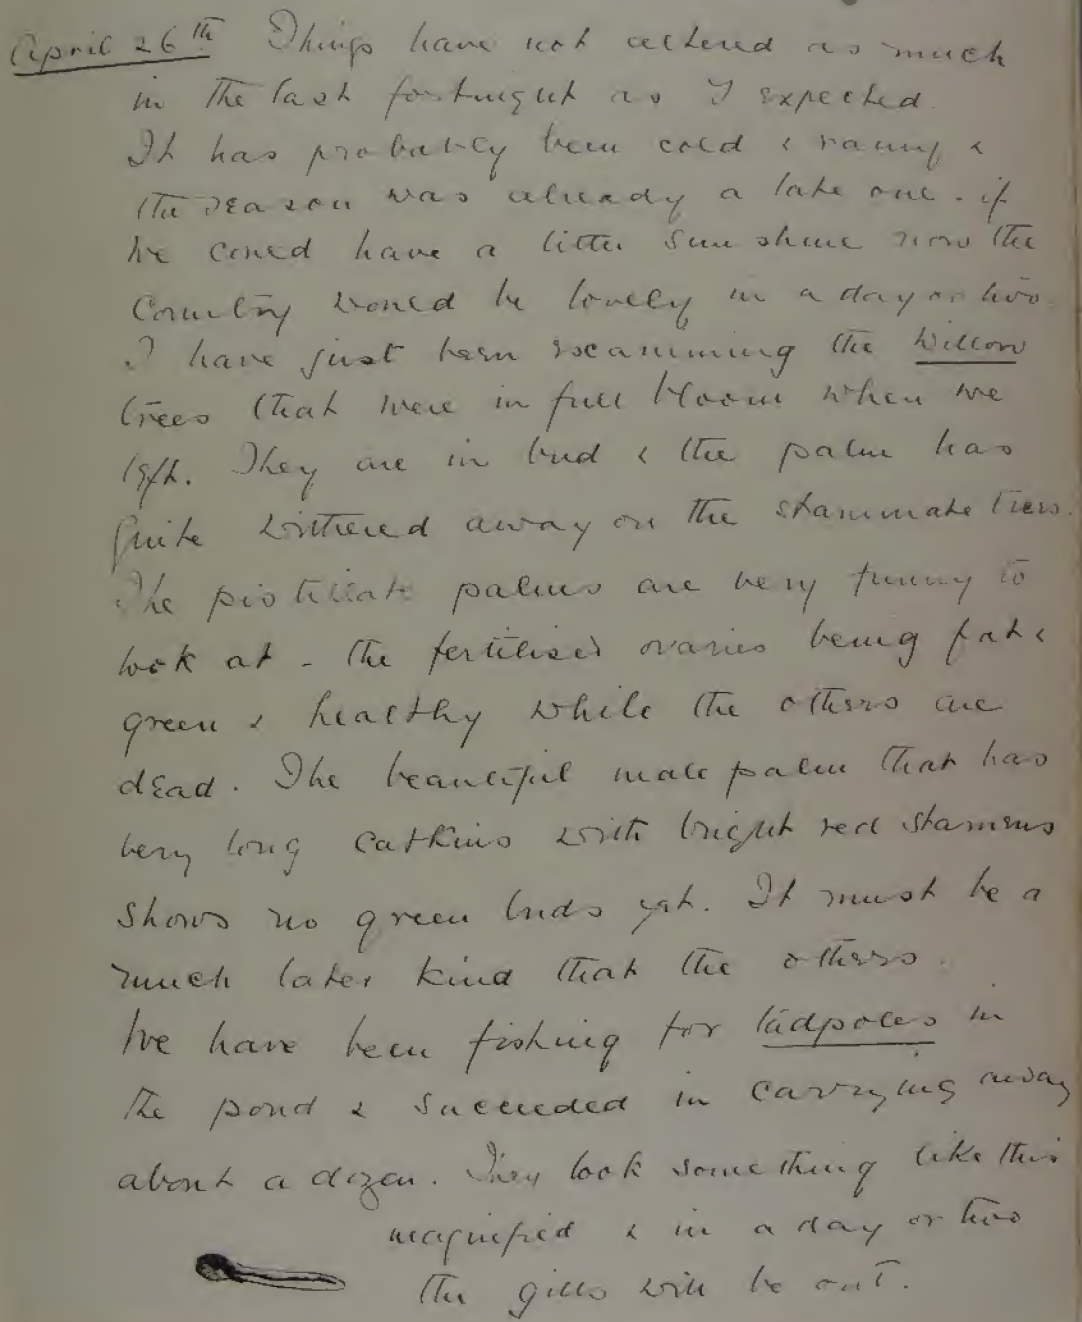 April 26th Things have not altered as much
in the last fortnight as I expected.
It has probably been cold & rainy &
the season was already a late one. if
we could have a little sunshine now the
Country would be lovely in a day or two.
I have just been examining the Willow
trees that were in full bloom when we
left. They are in bud & the palm has
quite withered away on the staminate trees.
The pistillate palms are very funny to
look at - the fertilised ovaries being fat &
green & healthy while the others are
dead. The beautiful male palm that has
very long catkins with bright red stamens
shows no green buds yet. It must be a
much later kind that the others.
We have been fishing for tadpoles in
the pond & succeeded in carrying away
about a dozen. They look something like this
magnified & in a day or two
the gills will be out.